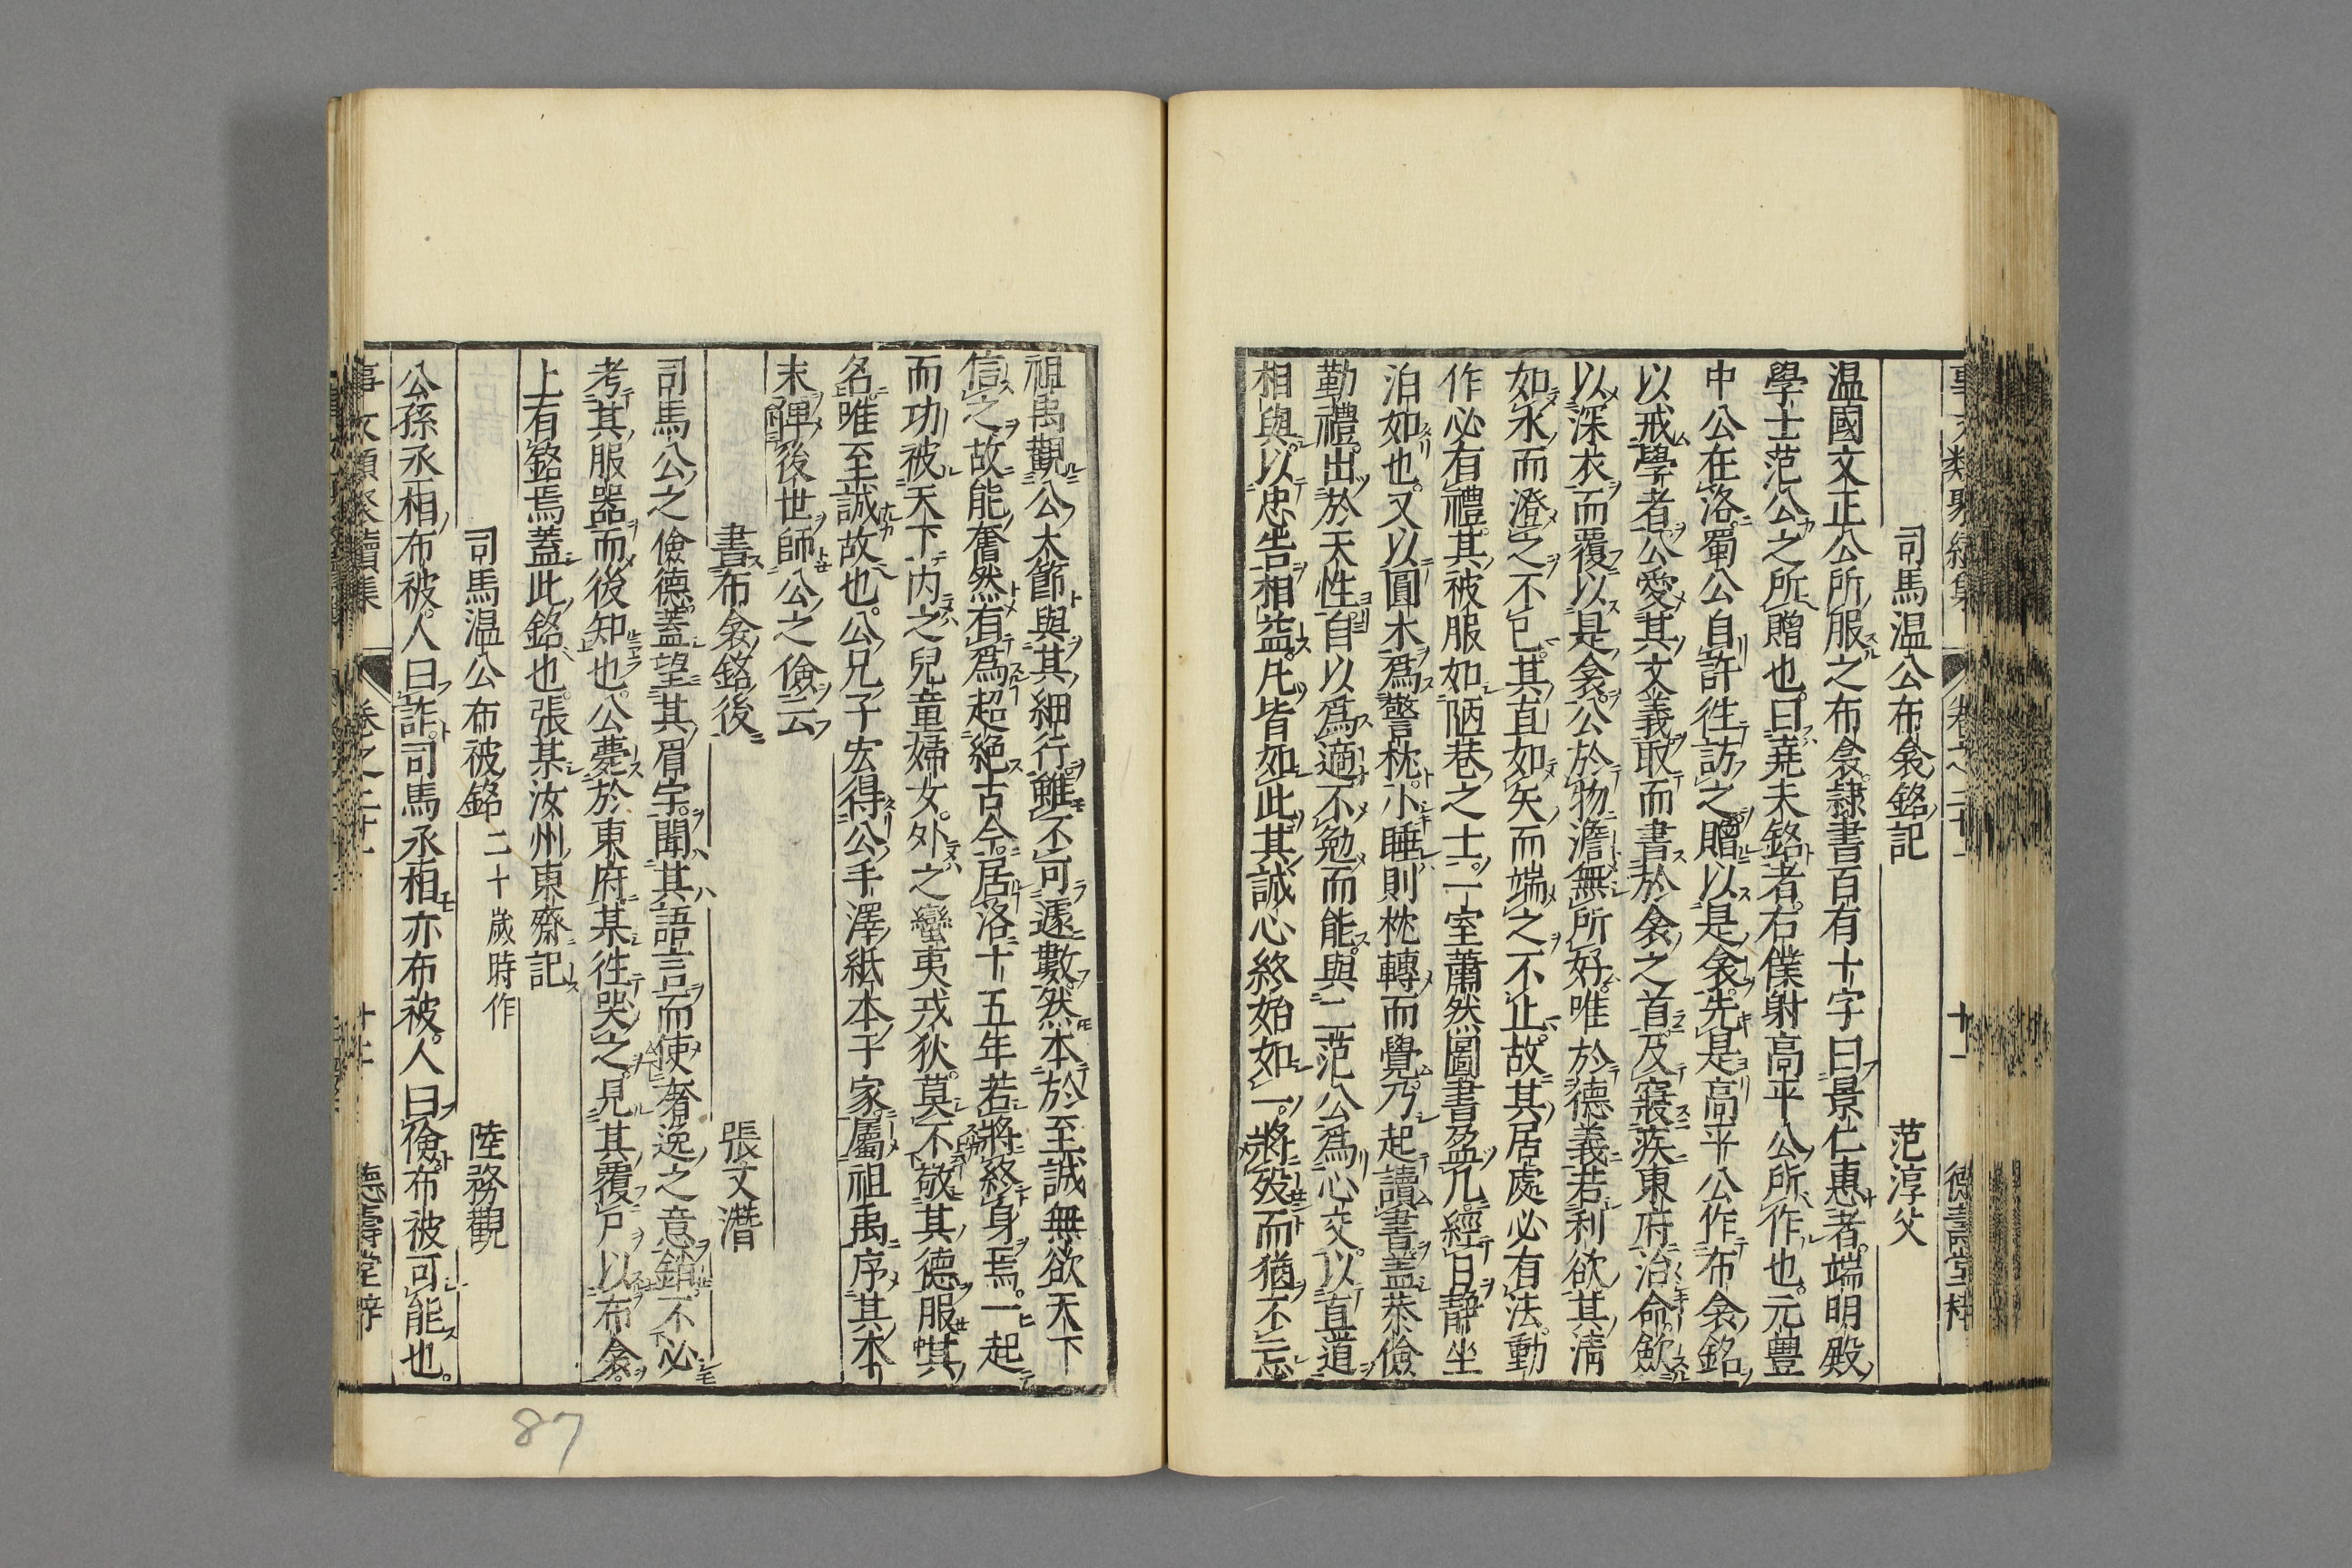 司馬温公布衾銘記　范淳父
温國文正公所服之布衾隷書百有十字曰景仁惠者端明殿
學士范公之所贈也曰堯夫銘者右僕射高平公所作也元豊
中公在洛蜀公自許徃訪之贈以是衾先是高平公作布衾銘
以戒學者公愛其文義取而書於衾之首及寢疾東府治命歛
以深衣而覆以是衾公於物澹無所好唯於德義若利欲其清
如水而澄之不已其直如矢而端之不止故其居處必有法動
作必有禮其被服如陋巷之士一室蕭然圖書盈几經日靜坐
泊如也又以圓木爲警枕小睡則枕轉而覺乃起讀書蓋恭儉
勤禮出於天性自以爲適不勉而能與二范公爲心交以直道
相與以忠告相益凡皆如此其誠心終始如一將歿而猶不忘
祖禹觀公大節與其細行雖不可遽數然本於至誠無欲天下
信之故能奮然有爲超絶古今居洛十五年若將終身焉一起
而功被天下内之兒童婦女外之蠻夷戎狄莫不敬其德服其
名唯至誠故也公兄子宏得公手澤紙本于家屬祖禹序其本
末俾後世師公之儉云
書布衾銘後　張文潛
司馬公之儉德蓋望其眉宇聞其語言而使奢逸之意銷不必
考其服器而後知也公薨於東府某徃哭之見其覆尸以布衾
上有銘焉蓋此銘也張某汝州東齋記
司馬温公布被銘 二十歲時作　陸務觀
公孫丞相布被人曰詐司馬丞相亦布被人曰儉布被可能也
事文類聚續集　卷之二十一　十二　德壽堂梓
87